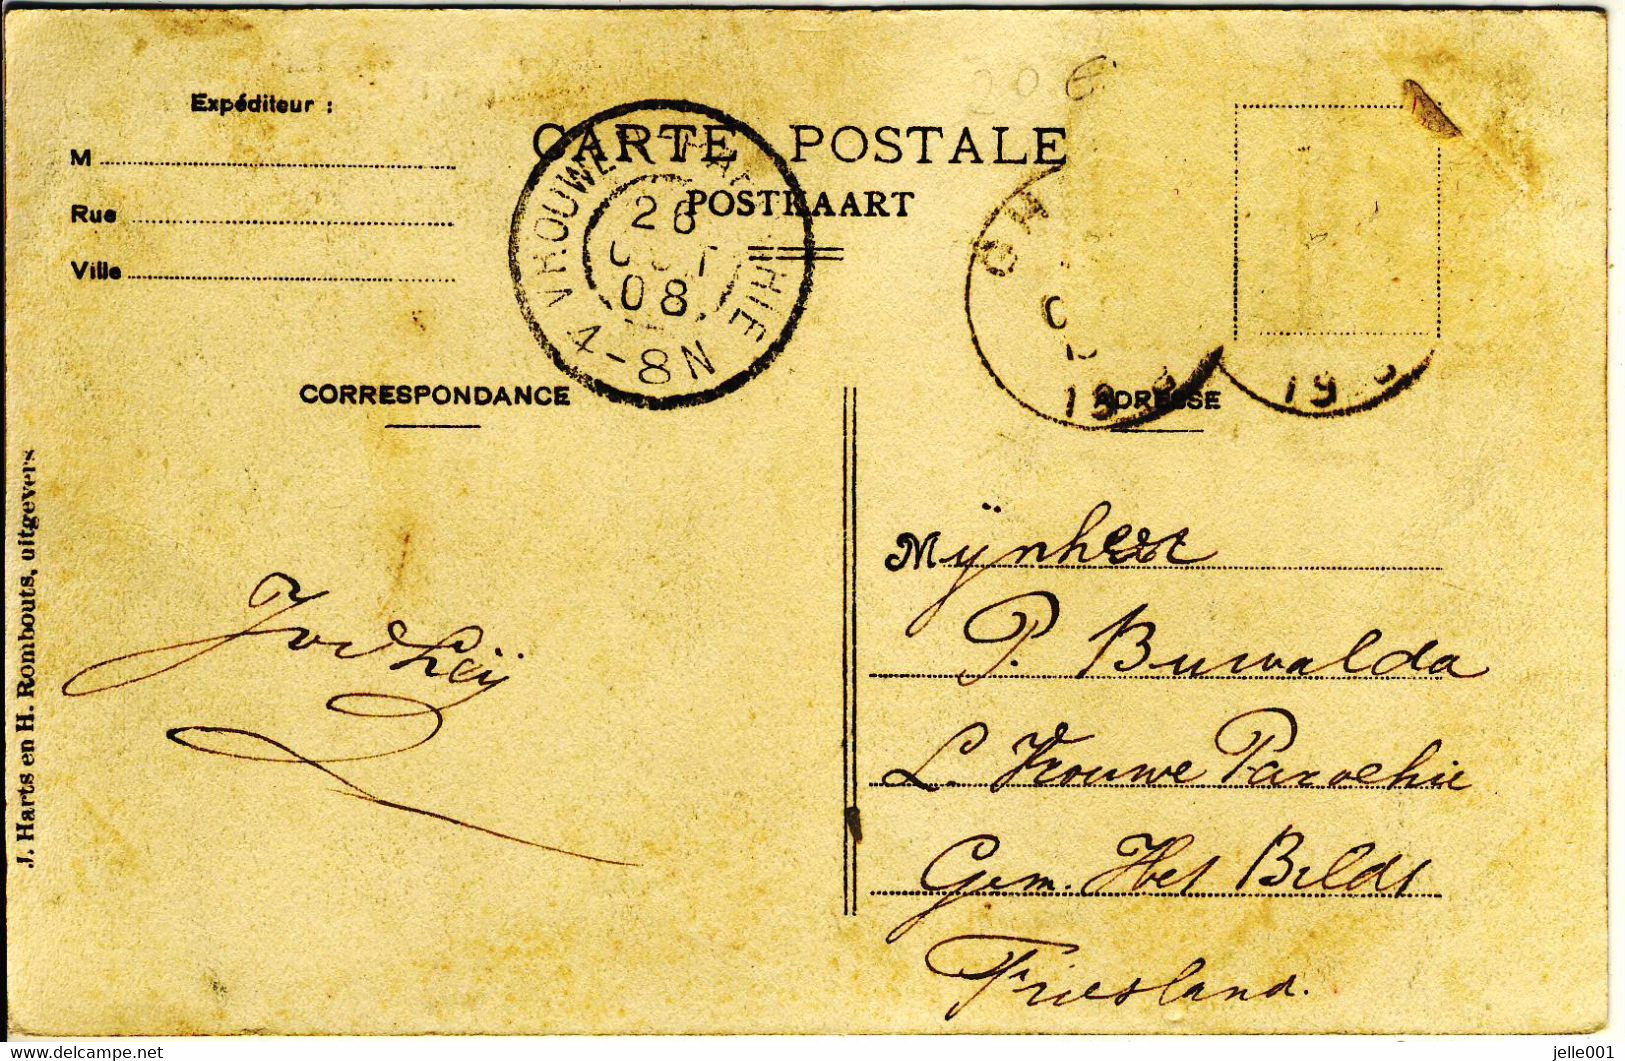 20 €
Expéditeur :
M
Rue
Ville
CARTE POSTALE
POSTKAART
26
08
4-8N
GH
19
19
CORRESPONDANCE
ADRESSE
J. Harts en H. Rombouts, uitgevers
Mÿnheer
P. Buwalda
L. Vrouwe Parochie
Gem. Het Bildt
Friesland.
delcampe.net
jelle001